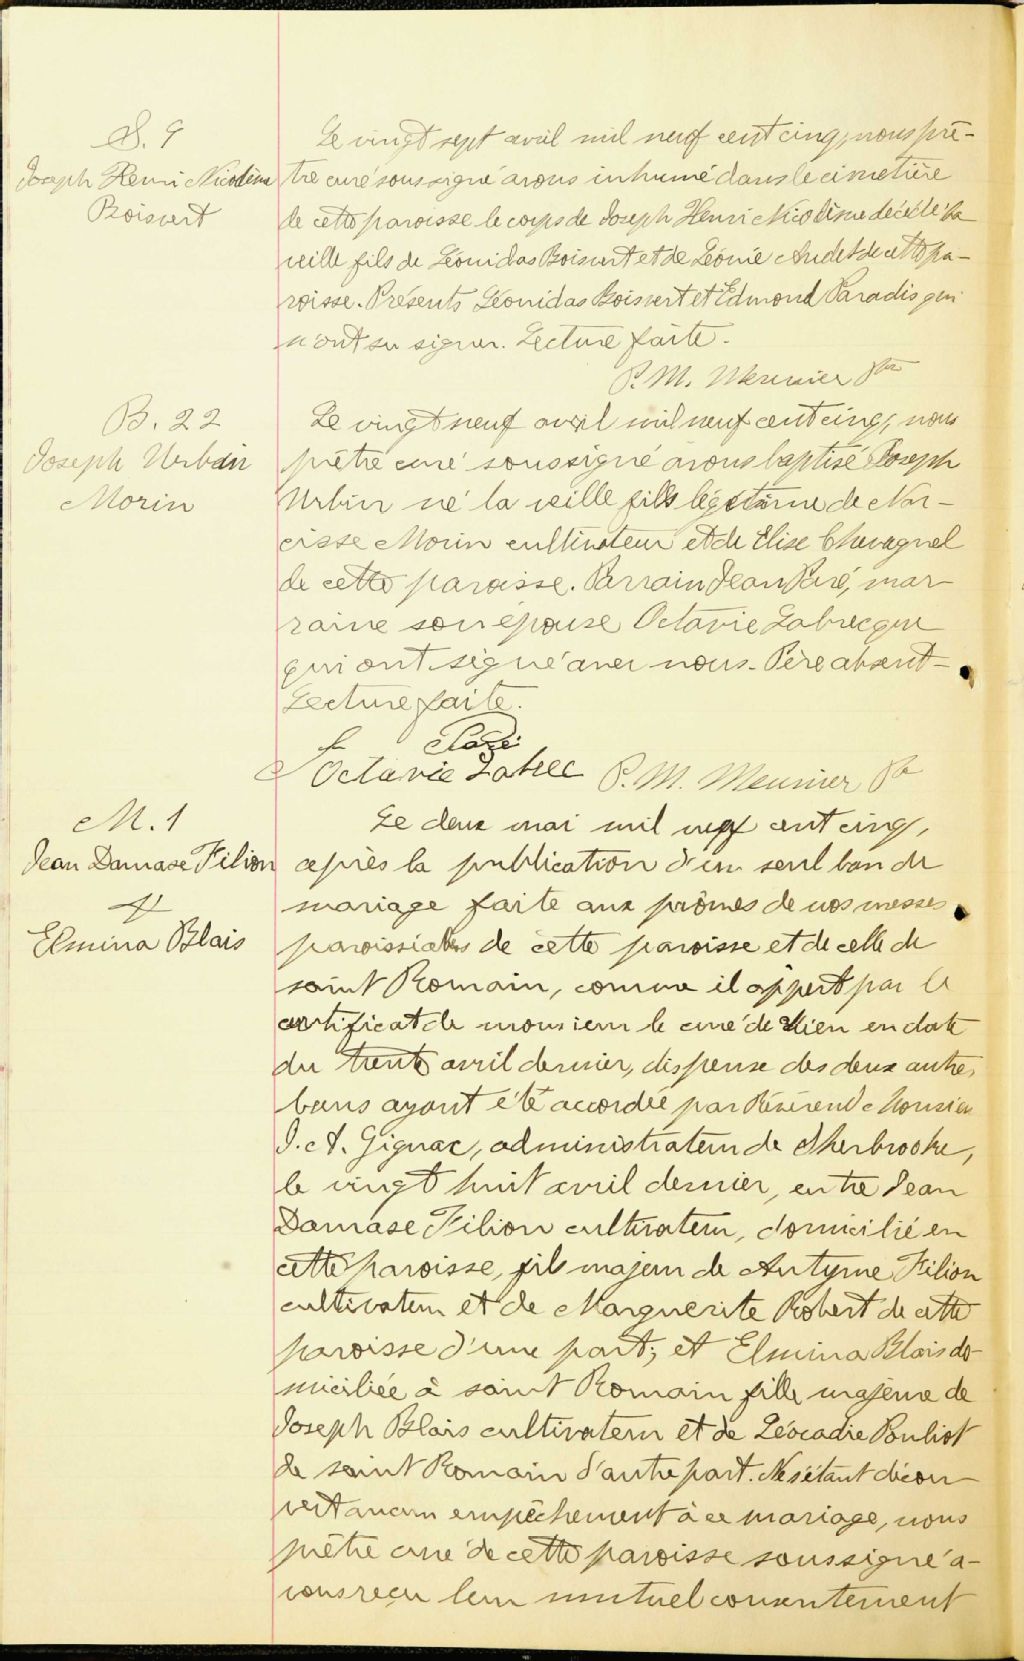 S. 9
Joseph Henri Nicodème
Boisvert
Le vingt sept avril mil neuf cent cinq, nous prê-
tre curé soussigné avons inhumé dans le cimetière
de cette paroisse le corps de Joseph Henri Nicodème décédé la
veille fils de Léonidas Boisvert et de Léonie Audet de cette pa-
roisse. Présents Léonidas Boisvert et Edmond Paradis qui
n'ont su signer. Lecture faite.
P. M. Meunier Ptre
B. 22
Joseph Urbain
Morin
Le vingt neuf avril mil neuf cent cinq, nous
prêtre curé soussigné avons baptisé Joseph
Urbin né la veille fils légitime de Nar-
cisse Morin cultivateur et de Elise Chavagnel
de cette paroisse. Parrain Jean Paré, mar-
raine son épouse Octavie Labrecque
qui ont signé avec nous. Père absent-
Lecture faite.
J Paré
Octavie Labrec P. M. Meunier Ptr
M. 1
Jean Damase Filion
&
Elmina Blais
Le deux mai mil neuf cent cinq,
après la publication d'un seul ban de
mariage faite aux prônes de nos messes
paroissiales de cette paroisse et de celle de
saint Romain, comme il appert par le
certificat de monsieur le curé de lieu en date
du trente avril dernier, dispense des deux autres
bans ayant été accordée par Révérend Monsieur
J. A. Gignac, administrateur de Sherbrooke,
le vingt huit avril dernier, entre Jean
Damase Filion cultivateur, domicilié en
cette paroisse, fils majeur de Antyme Filion
cultivateur et de Marguerite Robert de cette
paroisse d'une part; et Elmina Blais do-
miciliée à saint Romain fille majeure de
Joseph Blais cultivateur et de Léocadie Pouliot
de saint Romain d'autre part. Ne s'étant décou-
vert aucun empêchement à ce mariage, nous
prêtre curé de cette paroisse soussigné a-
vons reçu leur mutuel consentement